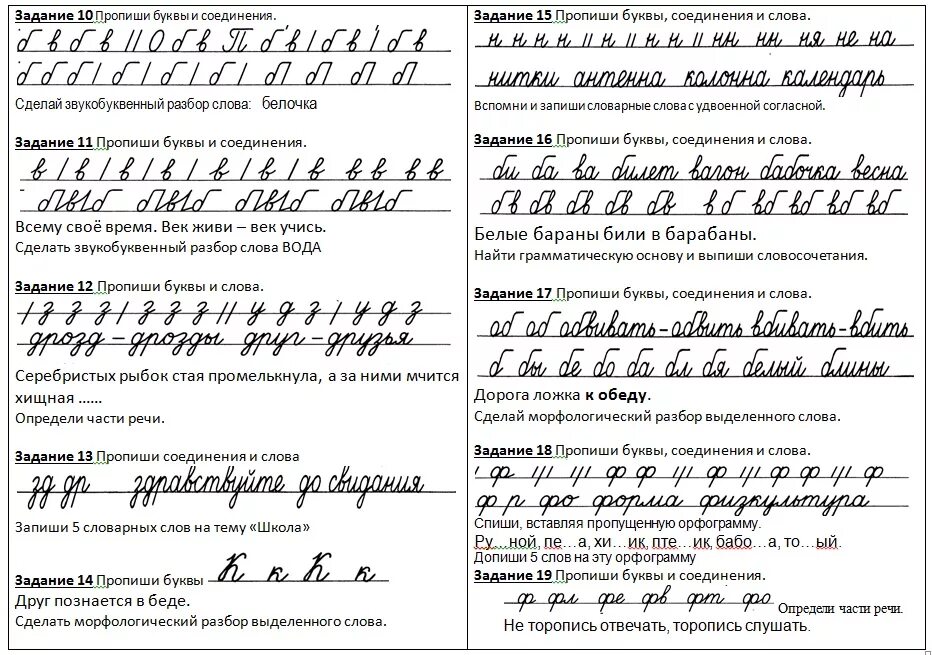 Задание 10 Пропиши буквы и соединения.
б в б в | | О б в П б в | б в | б в
б б б | б | б | б | б П б П б П б П
Сделай звукобуквенный разбор слова: белочка
Задание 11 Пропиши буквы и соединения.
в | в | в | в | в | в | в в в в в
Всему своё время. Век живи – век учись.
Сделать звукобуквенный разбор слова ВОДА
Задание 12 Пропиши буквы и слова.
| з з з | з з з | | у д з | у д з
дрозд – дрозды друг – друзья
Серебристых рыбок стая промелькнула, а за ними мчится
хищная ......
Определи части речи.
Задание 13 Пропиши соединения и слова
зд др здравствуйте до свидания
Запиши 5 словарных слов на тему «Школа»
Задание 14 Пропиши буквы К к К к
Друг познается в беде.
Сделать морфологический разбор выделенного слова.
Задание 15 Пропиши буквы, соединения и слова.
н н н н | | н | | н н | | нн нн ня не на
нитки антенна колонна календарь
Вспомни и запиши словарные слова с удвоенной согласной.
Задание 16 Пропиши буквы, соединения и слова.
би ба ва билет вагон бабочка весна
бв бв бв бв бв в б вб вб вб вб
Белые бараны били в барабаны.
Найти грамматическую основу и выпиши словосочетания.
Задание 17 Пропиши буквы, соединения и слова.
об об обвивать-обвить вбивать-вбить
б бы бе бо ба бл бя белый блины
Дорога ложка к обеду.
Сделай морфологический разбор выделенного слова.
Задание 18 Пропиши буквы, соединения и слова.
| ф | | | | | | ф ф | | | ф | | | ф ф | | | ф
ф р фо форма физкультура
Спиши, вставляя пропущенную орфограмму.
Ру…ной, пе…а, хи…ик, пте…ик, бабо…а, то…ый.
Допиши 5 слов на эту орфограмму
Задание 19 Пропиши буквы и соединения.
ф фл фе фв фт фо Определи части речи.
Не торопись отвечать, торопись слушать.